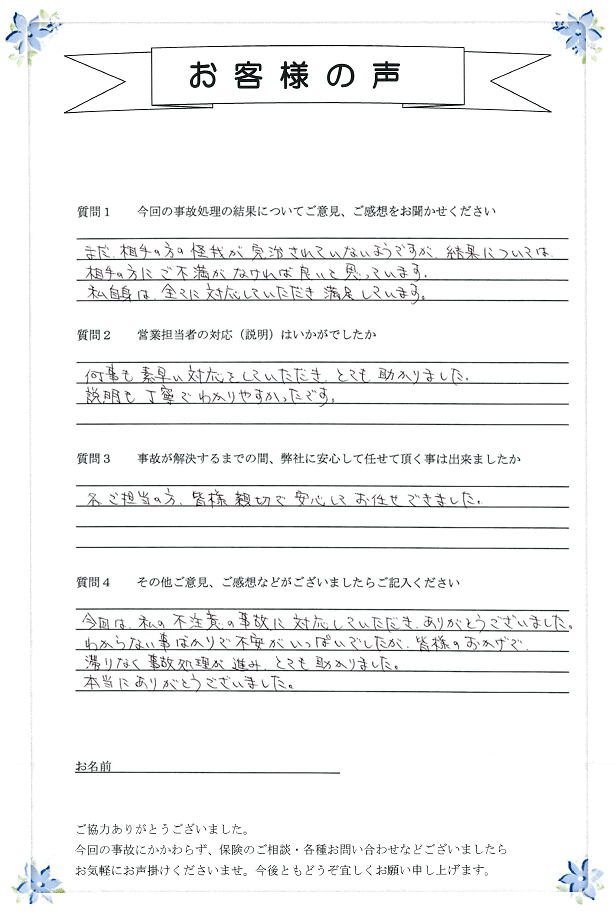 お客様の声
質問１　今回の事故処理の結果についてご意見、ご感想をお聞かせください
まだ、相手の方の怪我が完治されていないようですが、結果については、
相手の方にご不満がなければ良いと思っています。
私自身は、全てに対応していただき満足しています。
質問２　営業担当者の対応（説明）はいかがでしたか
何事も素早い対応をしていただき、とても助かりました。
説明も丁寧でわかりやすかったです。
質問３　事故が解決するまでの間、弊社に安心して任せて頂く事は出来ましたか
各ご担当の方、皆様親切で安心してお任せできました。
質問４　その他ご意見、ご感想などがございましたらご記入ください
今回は、私の不注意の事故に対応していただき、ありがとうございました。
わからない事ばかりで不安がいっぱいでしたが、皆様のおかげで、
滞りなく事故処理が進み、とても助かりました。
本当にありがとうございました。
お名前
ご協力ありがとうございました。
今回の事故にかかわらず、保険のご相談・各種お問い合わせなどございましたら
お気軽にお声掛けくださいませ。今後ともどうぞ宜しくお願い申し上げます。